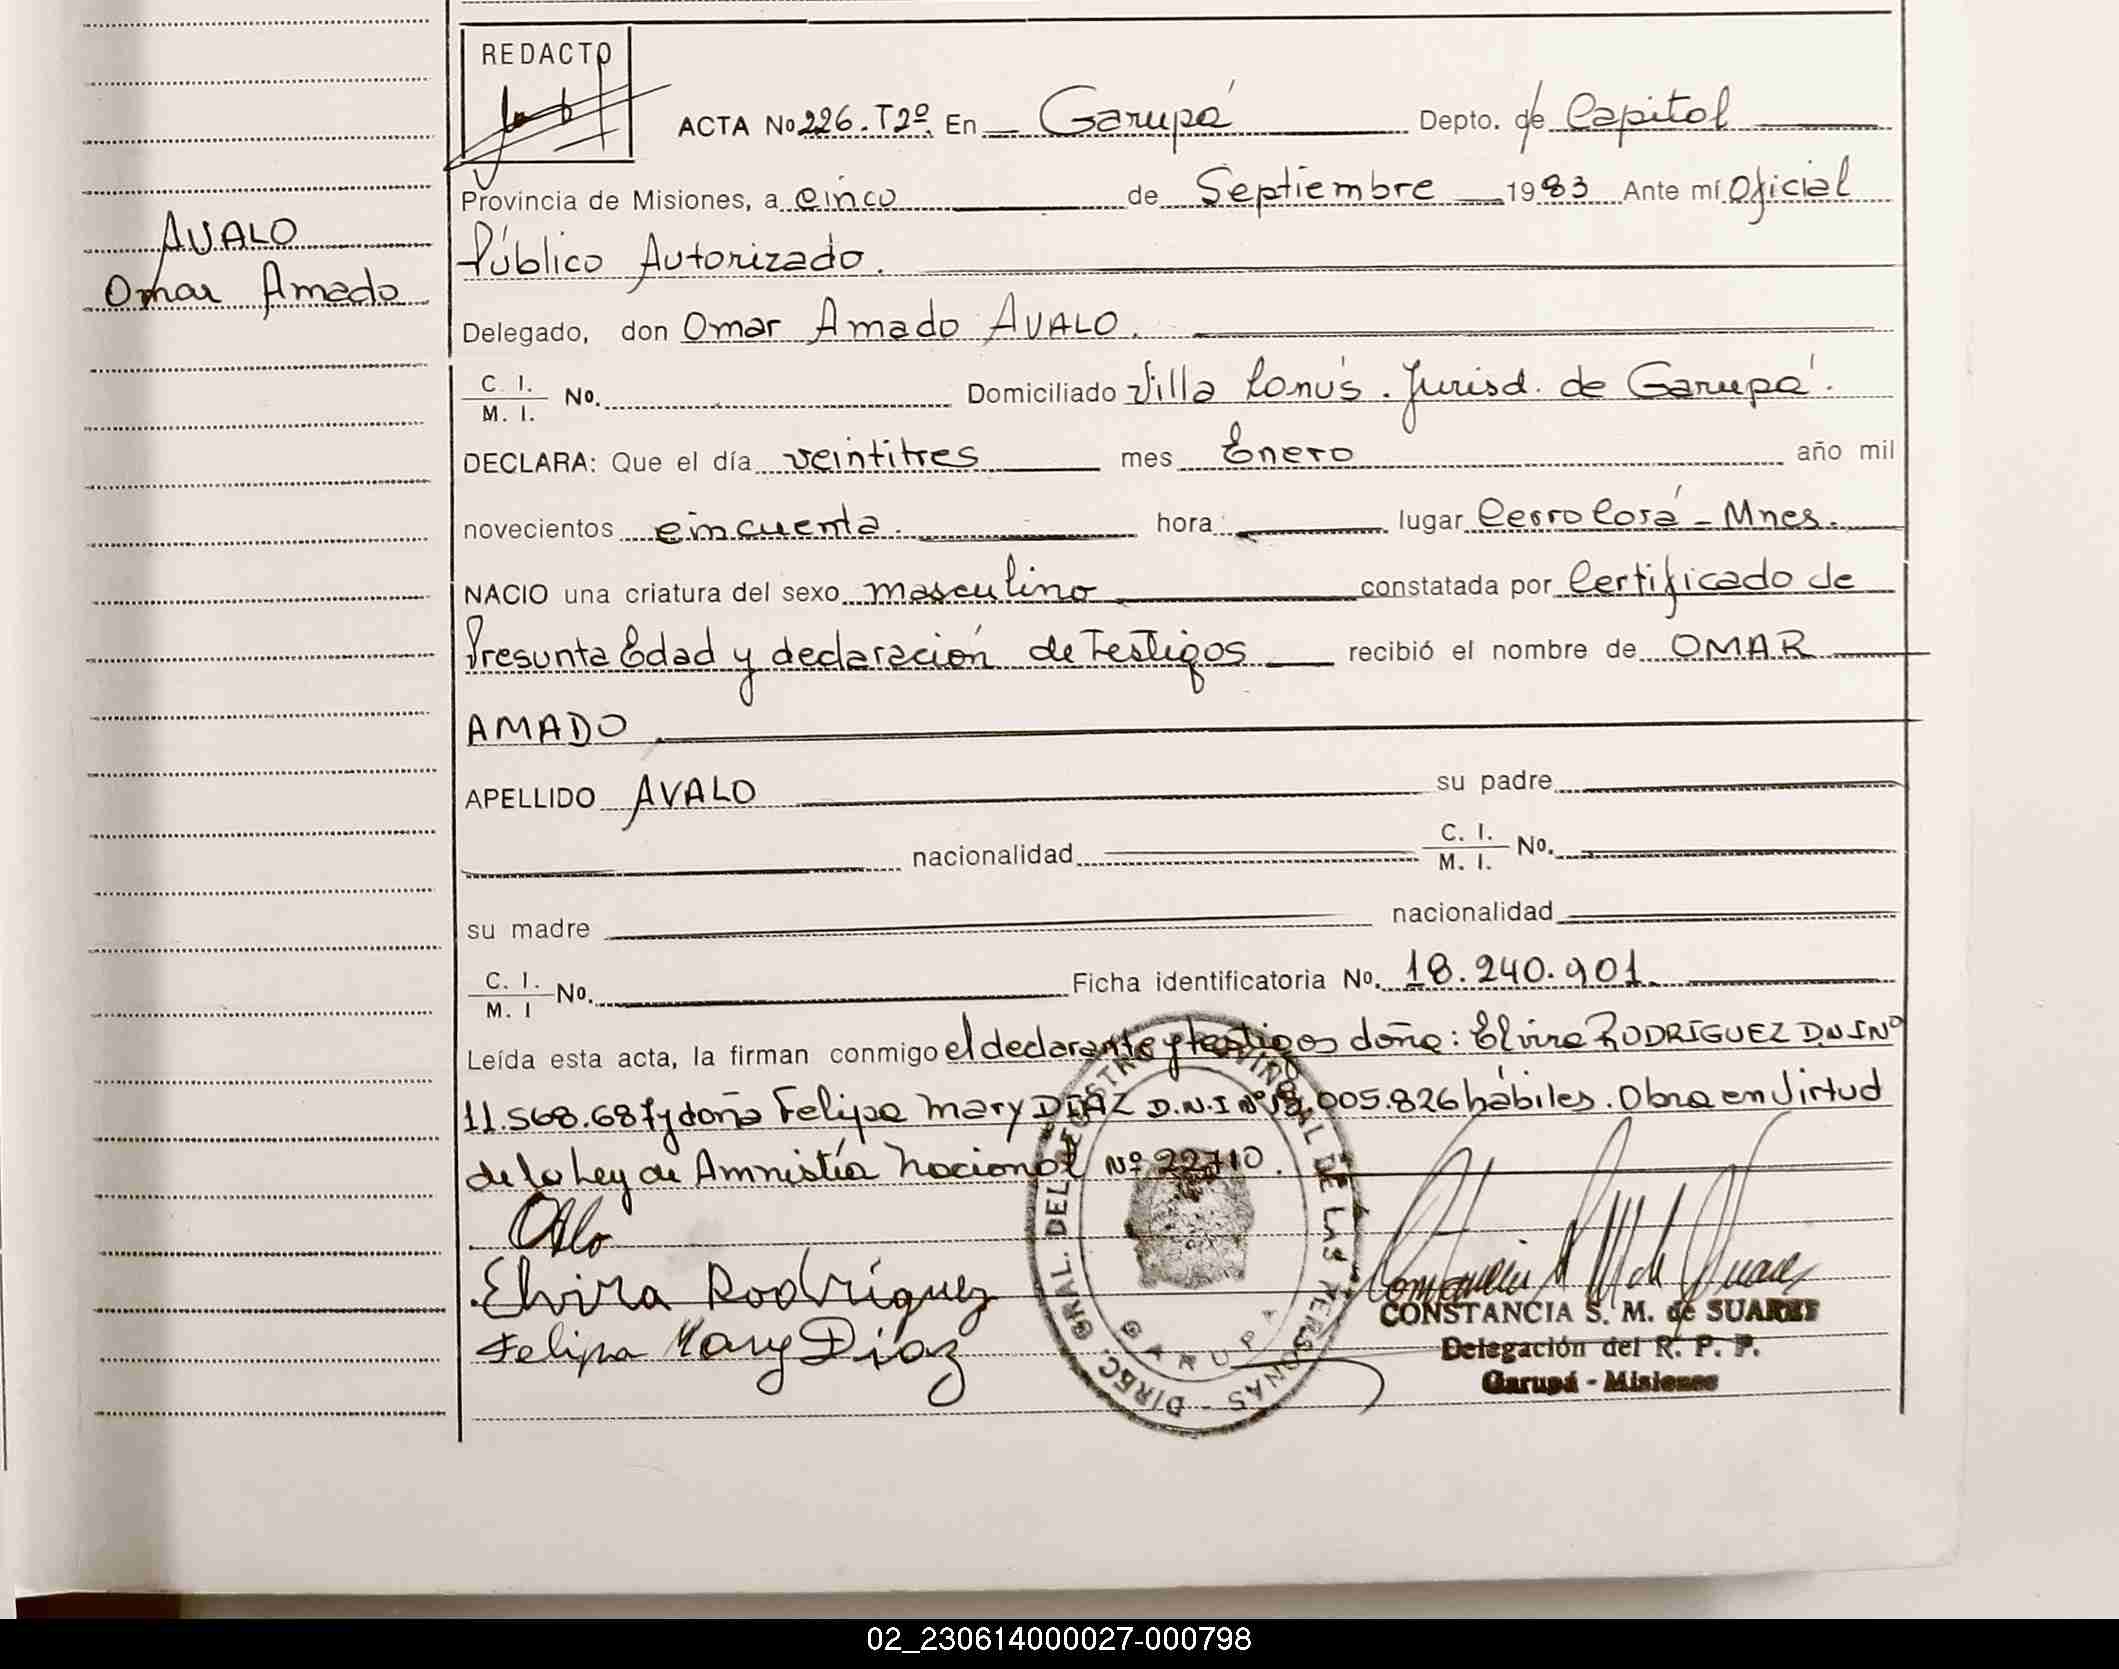 REDACTO
ACTA No 226. T2º. En Garupá Depto. de Capital
Provincia de Misiones, a cinco de Septiembre 1983 Ante mí Oficial
AVALO
Omar Amado
Público Autorizado.
Delegado, don Omar Amado AVALO.
C. I.
M. I. No. Domiciliado Villa Lanús. Jurisd. de Garupá.
DECLARA: Que el día veintitres mes Enero año mil
novecientos cincuenta. hora lugar Cerro Corá - Mnes.
NACIO una criatura del sexo masculino constatada por Certificado de
Presunta Edad y declaración de Testigos recibió el nombre de OMAR
AMADO
APELLIDO AVALO su padre
nacionalidad C. I.
M. I. No.
su madre nacionalidad
C. I.
M. I No. Ficha identificatoria No. 18.240.901.
Leída esta acta, la firman conmigo el declarante y testigos doña: Elvira RODRIGUEZ D.N.I Nº
11.568.687 y doña Felipa Mary DIAZ D.N.I Nº 005.826 hábiles. Obra en Virtud
de la Ley de Amnistía Nacional Nº 22710.
Elvira Rodríguez
Felipa Mary Díaz
DIREC. GRAL. DEL REGISTRO PROVINCIAL DE LAS PERSONAS -
GARUPA
CONSTANCIA S. M. de SUAREZ
Delegación del R. P. P.
Garupá - Misiones
02_230614000027-000798